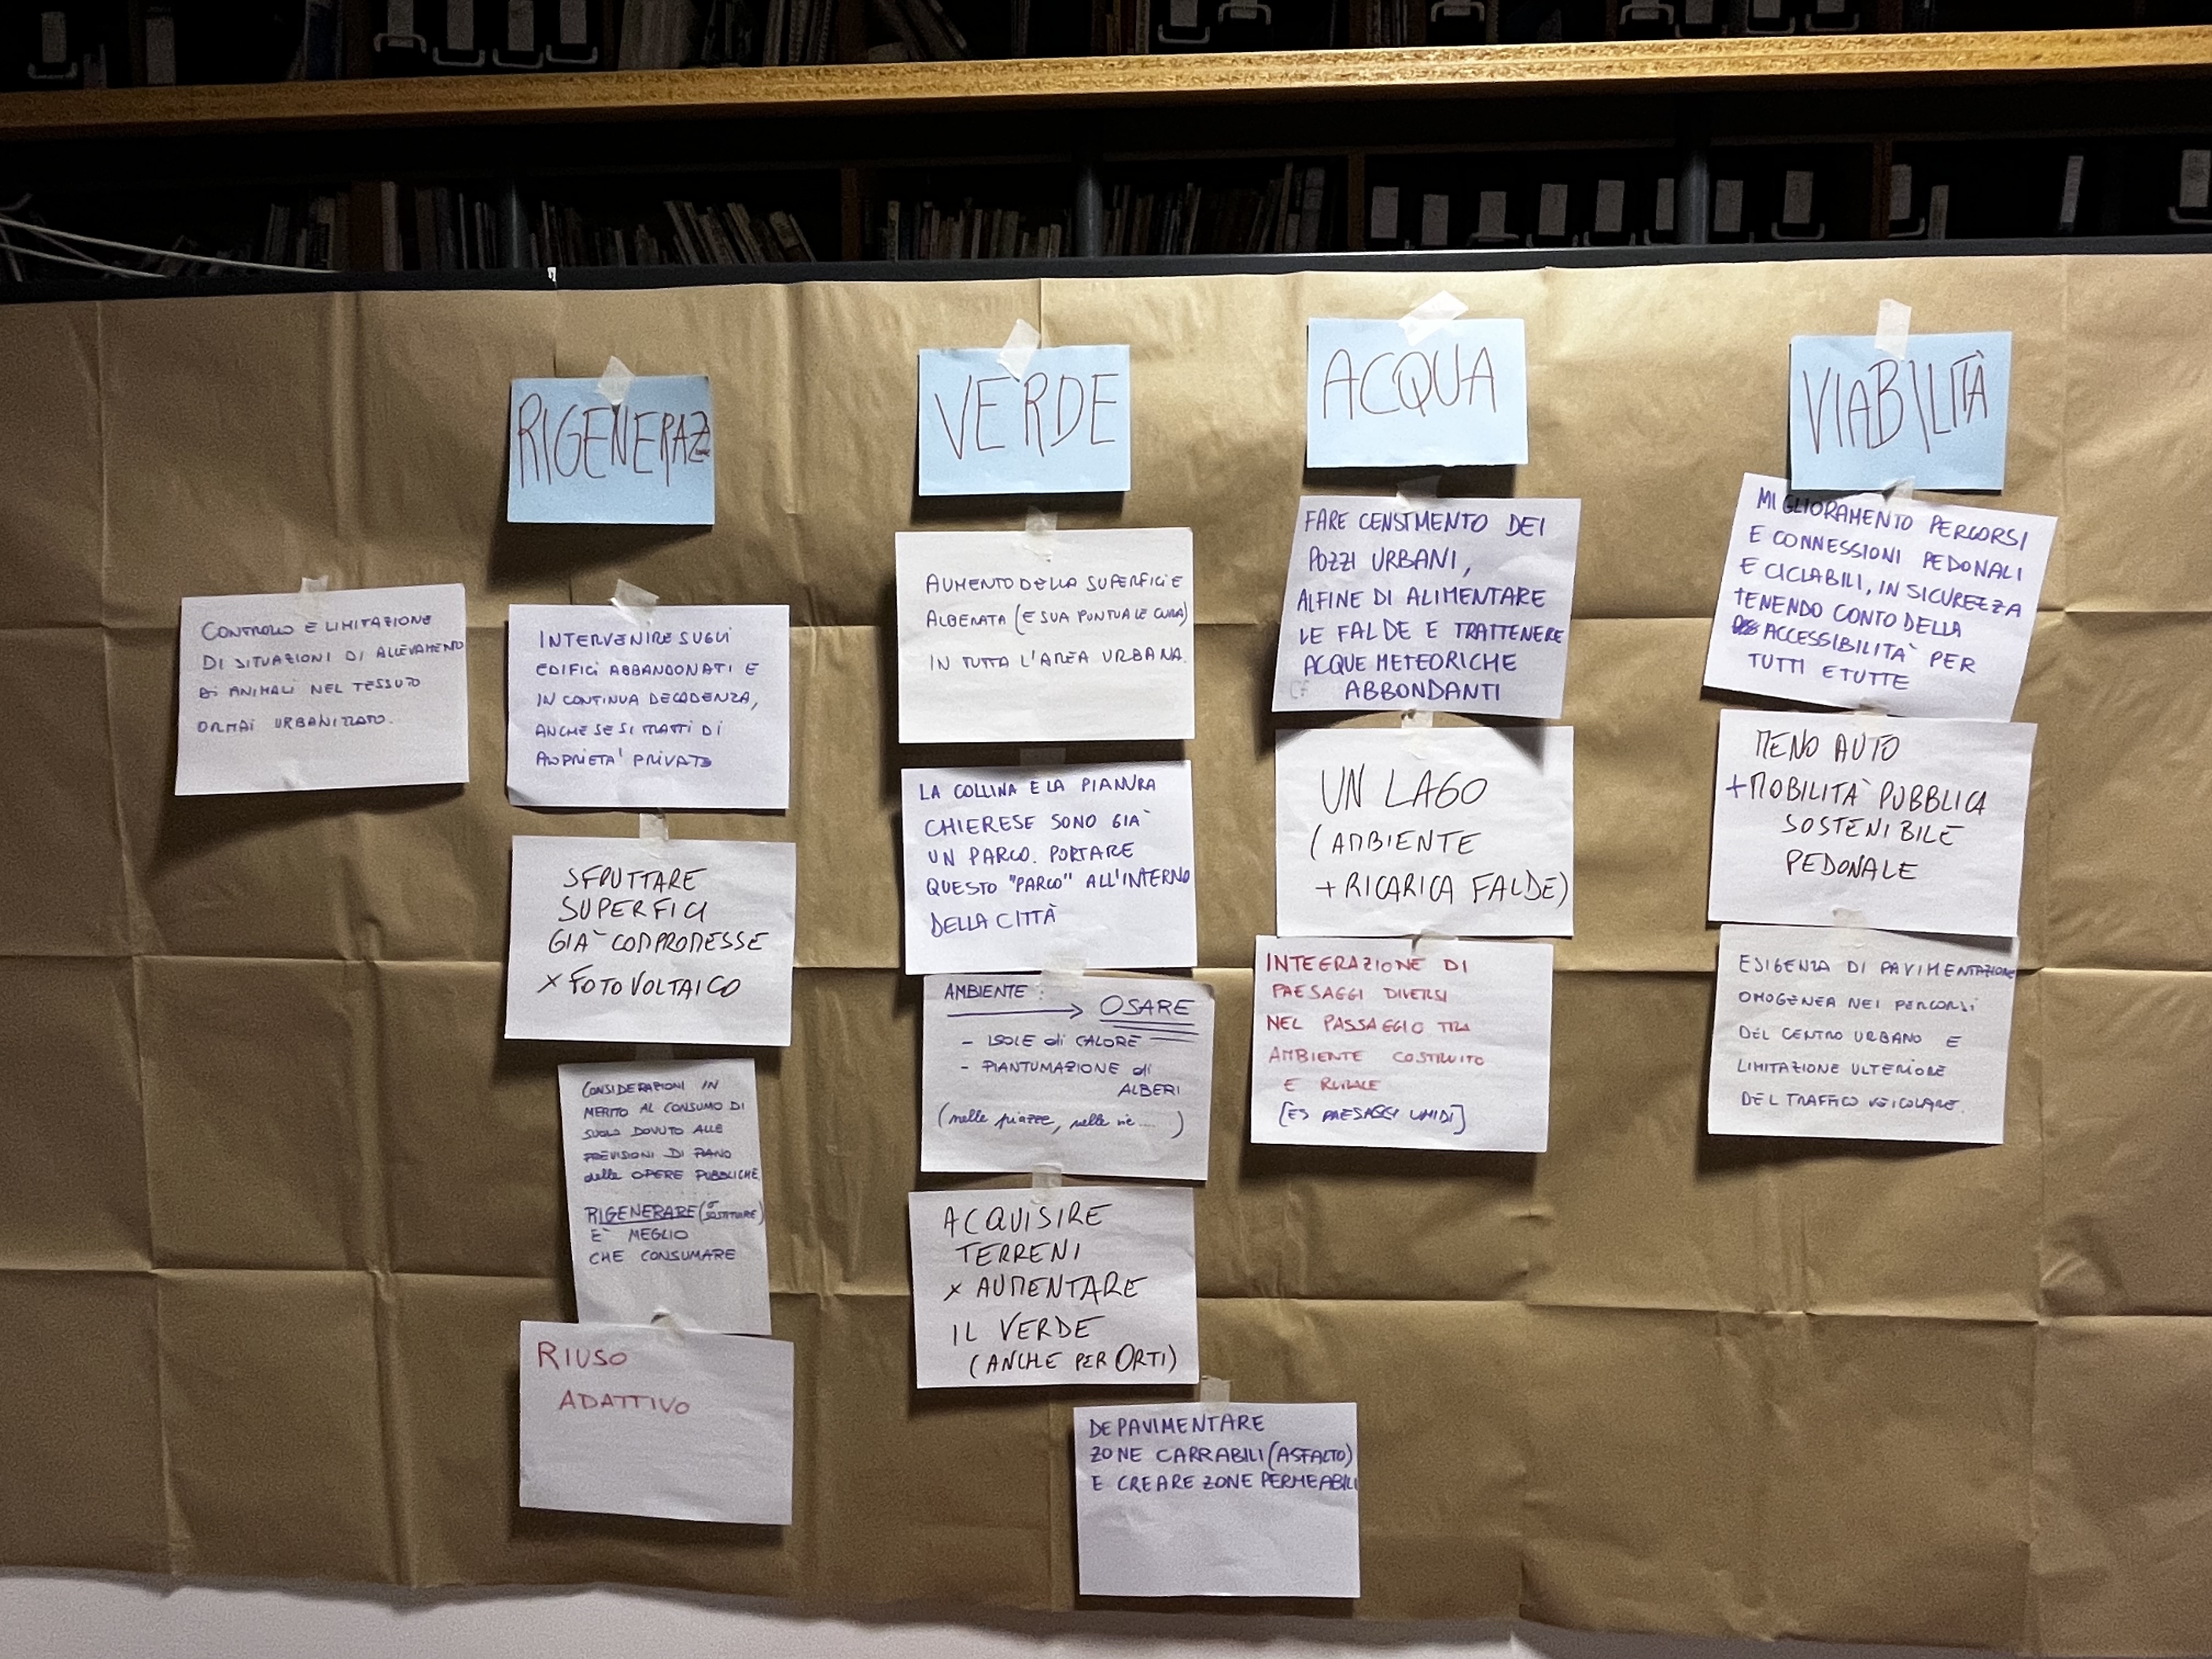 RIGENERAZ
VERDE
ACQUA
VIABILITÀ
CONTROLLO E LIMITAZIONE
DI SITUAZIONI DI ALLEVAMENTO
DI ANIMALI NEL TESSUTO
ORMAI URBANIZZATO.
INTERVENIRE SUGLI
EDIFICI ABBANDONATI E
IN CONTINUA DECADENZA,
ANCHE SE SI TRATTI DI
PROPRIETA' PRIVATE
SFRUTTARE
SUPERFICI
GIA' COMPROMESSE
x FOTOVOLTAICO
CONSIDERAZIONI IN
MERITO AL CONSUMO DI
SUOLO DOVUTO ALLE
PREVISIONI DI PIANO
delle OPERE PUBBLICHE.
RIGENERARE (O SOSTITUIRE)
E' MEGLIO
CHE CONSUMARE
RIUSO
ADATTIVO
AUMENTO DELLA SUPERFICIE
ALBERATA (E SUA PUNTUALE CURA)
IN TUTTA L'AREA URBANA.
LA COLLINA E LA PIANURA
CHIERESE SONO GIÀ
UN PARCO. PORTARE
QUESTO "PARCO" ALL'INTERNO
DELLA CITTÀ
AMBIENTE :
→ OSARE
- ISOLE di CALORE
- PIANTUMAZIONE di
ALBERI
(nelle piazze, nelle vie.... )
ACQUISIRE
TERRENI
x AUMENTARE
IL VERDE
(ANCHE PER ORTI)
DEPAVIMENTARE
ZONE CARRABILI (ASFALTO)
E CREARE ZONE PERMEABILI
FARE CENSIMENTO DEI
POZZI URBANI,
ALFINE DI ALIMENTARE
LE FALDE E TRATTENERE
ACQUE METEORICHE
ABBONDANTI
UN LAGO
(AMBIENTE
+ RICARICA FALDE)
INTEGRAZIONE DI
PAESAGGI DIVERSI
NEL PASSAGGIO TRA
AMBIENTE COSTRUITO
E RURALE
[ES PAESAGGI UMIDI]
MIGLIORAMENTO PERCORSI
E CONNESSIONI PEDONALI
E CICLABILI, IN SICUREZZA
TENENDO CONTO DELLA
ACCESSIBILITÀ PER
TUTTI E TUTTE
MENO AUTO
+ MOBILITÀ PUBBLICA
SOSTENIBILE
PEDONALE
ESIGENZA DI PAVIMENTAZIONE
OMOGENEA NEI PERCORSI
DEL CENTRO URBANO E
LIMITAZIONE ULTERIORE
DEL TRAFFICO VEICOLARE.